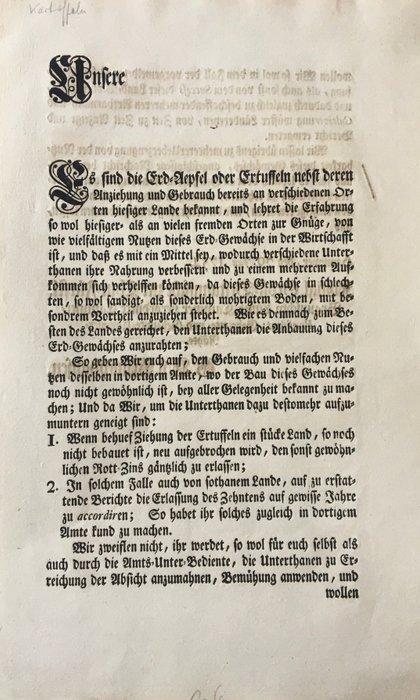 Kartoffeln
Unsere
Es sind die Erd-Aepfel oder Ertuffeln nebst deren
Anziehung und Gebrauch bereits an verschiedenen Or-
ten hiesiger Lande bekannt, und lehret die Erfahrung
so wol hiesiger- als an vielen fremden Orten zur Gnüge, von
wie vielfältigem Nutzen dieses Erd-Gewächse in der Wirtschafft
ist, und daß es mit ein Mittel sey, wodurch verschiedene Unter-
thanen ihre Nahrung verbessern und zu einem mehrerem Auf-
kommen sich verhelffen können, da dieses Gewächse in schlech-
ten, so wol sandigt- als sonderlich mohrigtem Boden, mit be-
sondrem Vortheil anzuziehen stehet. Wie es demnach zum Be-
sten des Landes gereichet, den Unterthanen die Anbauung dieses
Erd-Gewächses anzurahten;
So geben Wir euch auf, den Gebrauch und vielfachen Nu-
tzen desselben in dortigem Amte, wo der Bau dieses Gewächses
noch nicht gewöhnlich ist, bey aller Gelegenheit bekannt zu ma-
chen; Und da Wir, um die Unterthanen dazu destomehr aufzu-
muntern geneigt sind:
1. Wenn behuef Ziehung der Ertuffeln ein stücke Land, so noch
nicht bebauet ist, neu aufgebrochen wird, den sonst gewöhn-
lichen Rott-Zins gäntzlich zu erlassen;
2. In solchem Falle auch von sothanem Lande, auf zu erstat-
tende Berichte die Erlassung des Zehntens auf gewisse Jahre
zu accordiren; So habet ihr solches zugleich in dortigem
Amte kund zu machen.
Wir zweiflen nicht, ihr werdet, so wol für euch selbst als
auch durch die Amts-Unter-Bediente, die Unterthanen zu Er-
reichung der Absicht anzumahnen, Bemühung anwenden, und
wollen